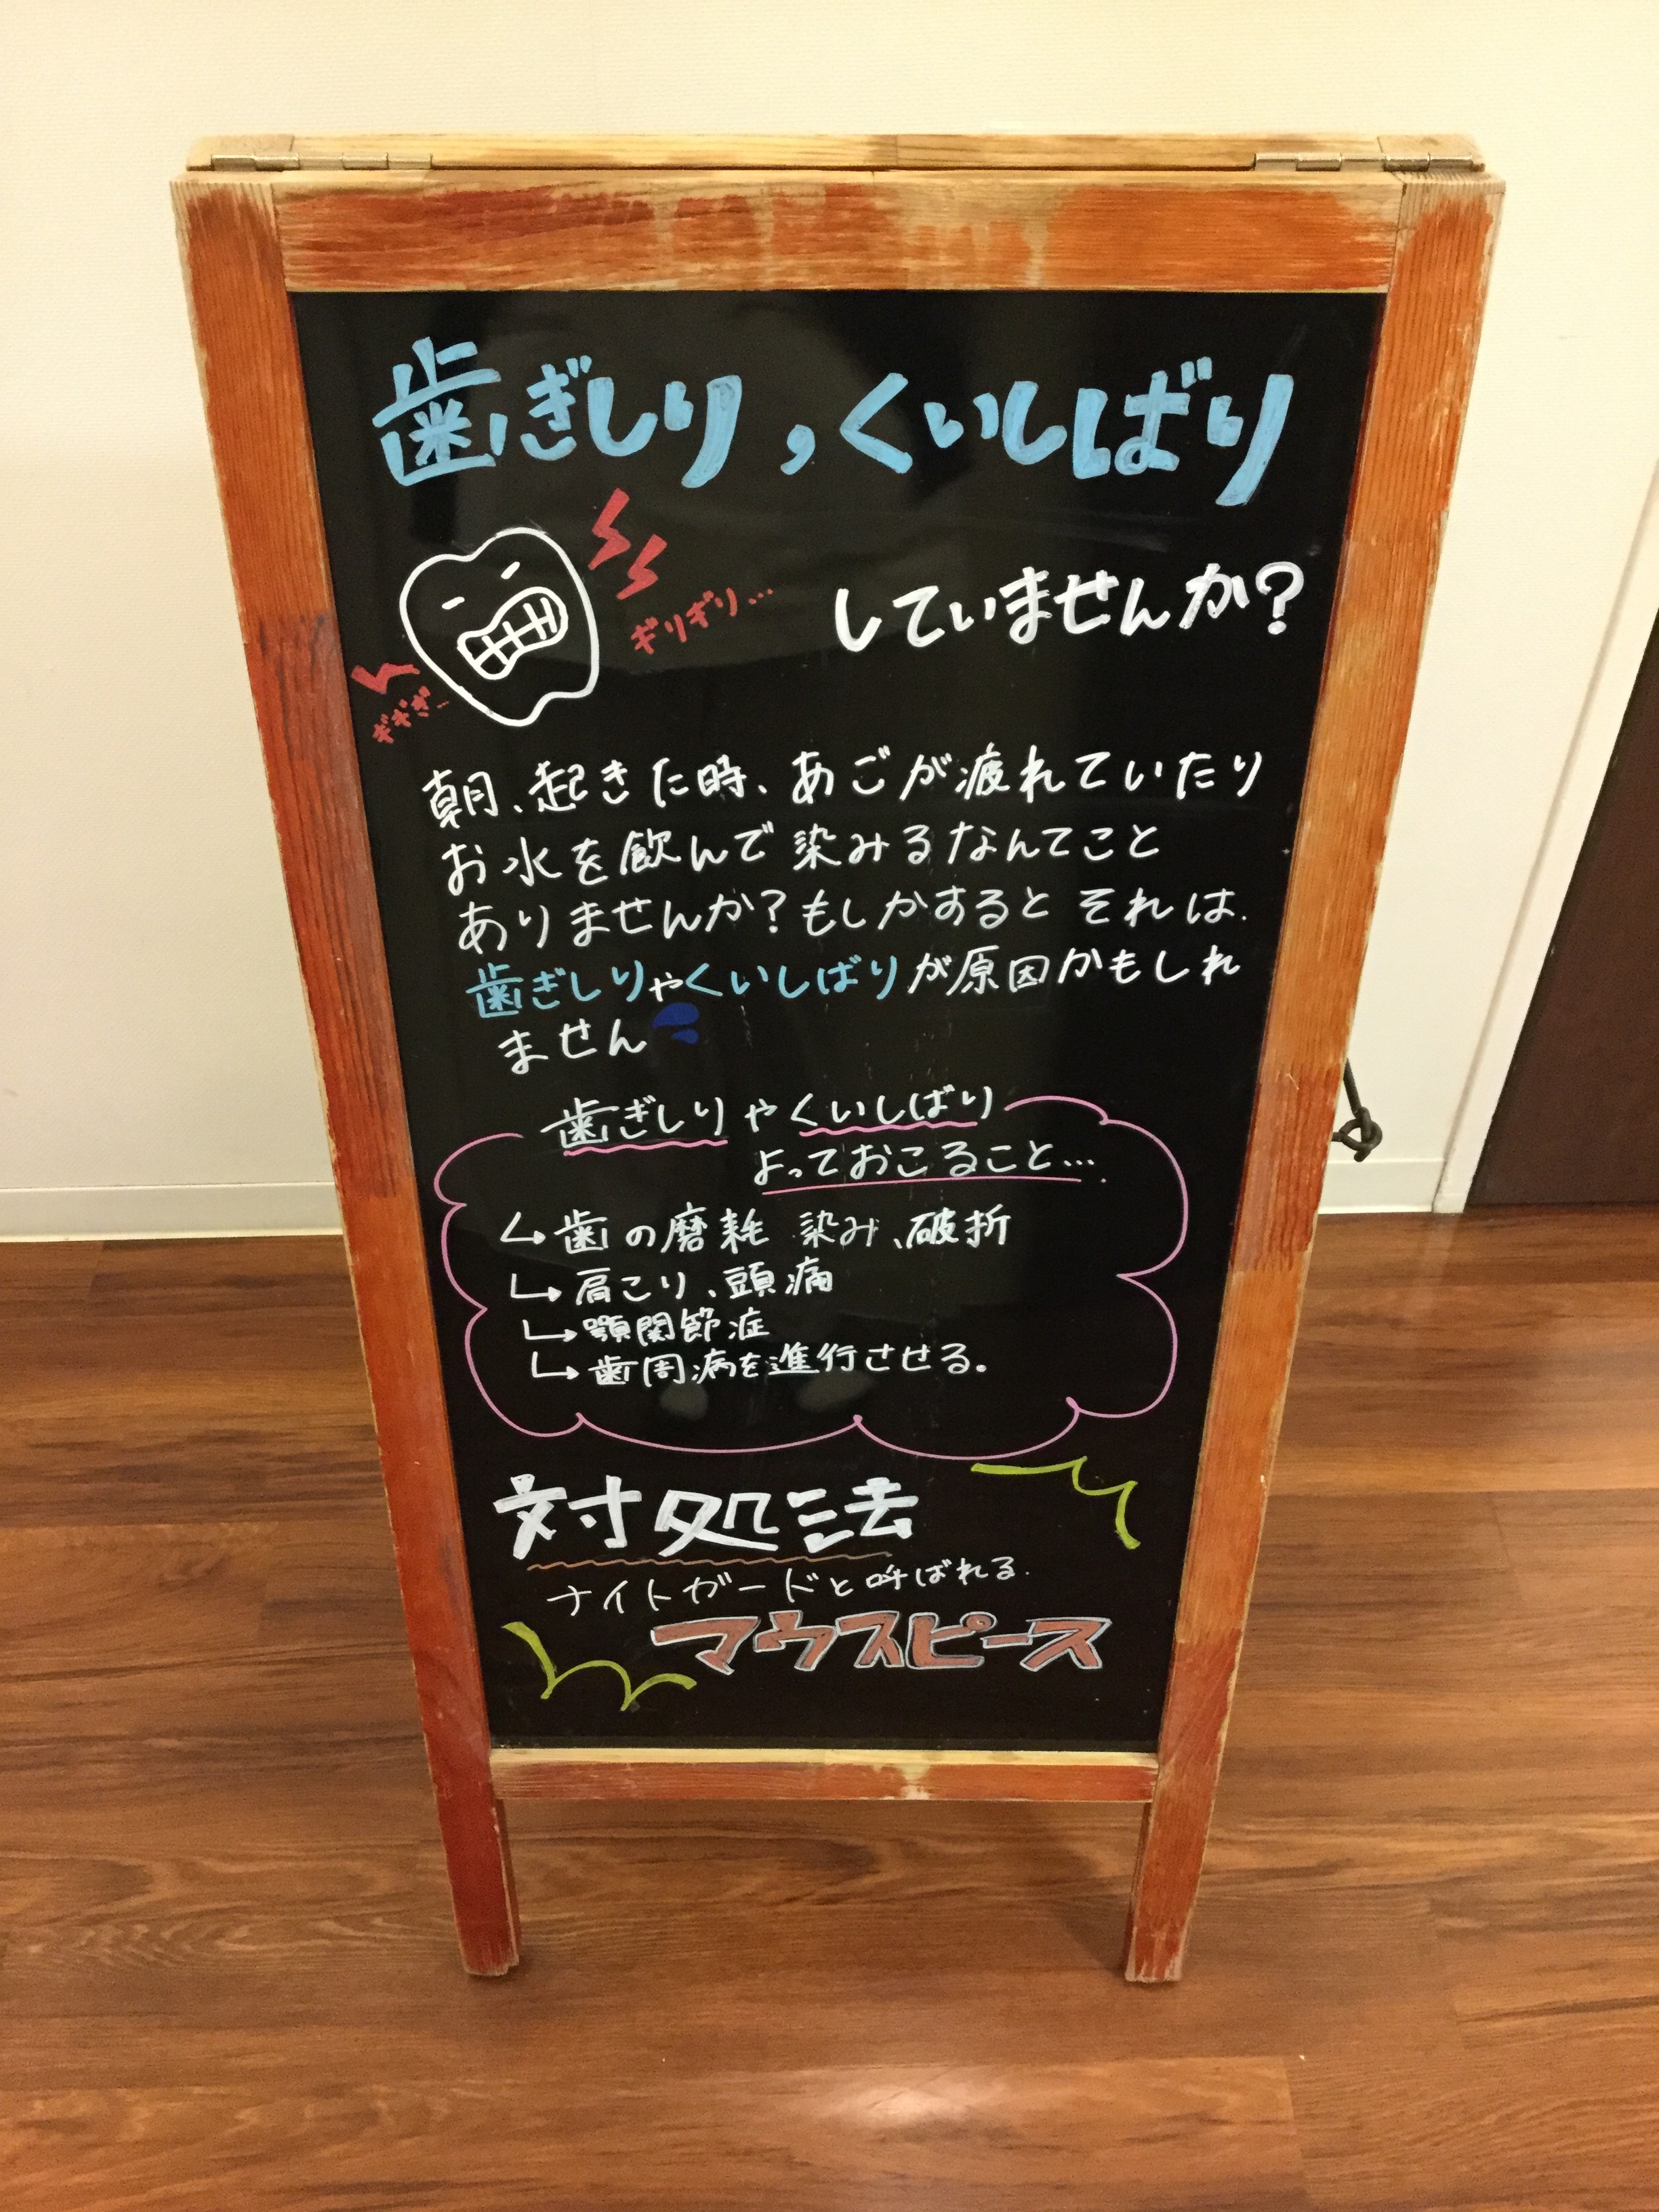 歯ぎしり,くいしばり
していませんか?
ギリギリ…
ギギギ…
朝、起きた時、あごが疲れていたり
お水を飲んで染みるなんてこと
ありませんか?もしかするとそれは、
歯ぎしりやくいしばりが原因かもしれ
ません
歯ぎしりやくいしばり
よっておこること…
歯の磨耗 染み、破折
肩こり、頭痛
顎関節症
歯周病を進行させる。
対処法
ナイトガードと呼ばれる
マウスピース